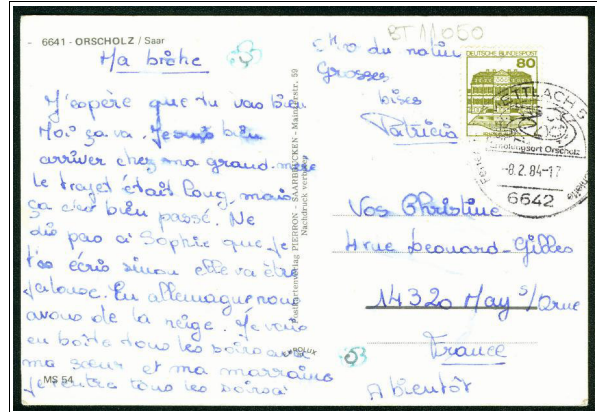 BT 11050
6641 - ORSCHOLZ / Saar
Ma biche
J'espère que tu vas bien
Moi ça va. Je suis bien
arriver chez ma grand-mère
le trajet était long, mais
ça c'est bien passé. Ne
dis pas a Sophie que je
t'es écris sinon elle va être
jalouse. En allemagne nous
avons de la neige. Je vais
en boîte tous les soirs avec
ma sœur et ma marraine
je rentre tous les soirs a
MS 54
Postkartenverlag PIERRON - SAARBRÜCKEN - Mainzerstr. 59
Nachdruck verboten
KROLUX
du matin
Grosses
bises
Patricia
DEUTSCHE BUNDESPOST
80
METTLACH 5
Erholungsort Orscholz
-8.2.84-17
6642
Vos Christine
4 rue Leonard-Gilles
14320 May s/Orne
France
A bientôt